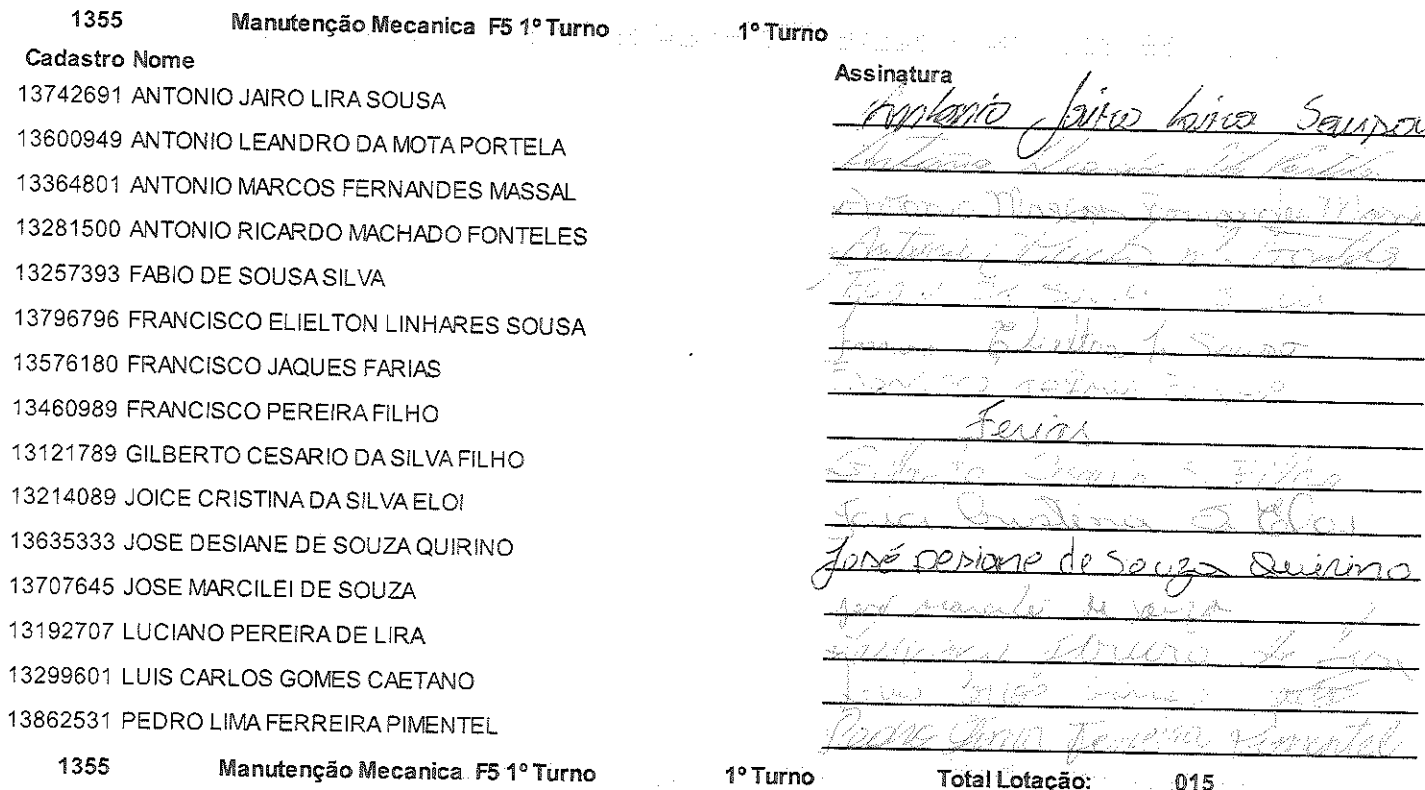 1355 Manutenção Mecanica F5 1º Turno 1º Turno
Cadastro Nome Assinatura
13742691 ANTONIO JAIRO LIRA SOUSA Antonio Jairo Lira Sousa
13600949 ANTONIO LEANDRO DA MOTA PORTELA Antonio
13364801 ANTONIO MARCOS FERNANDES MASSAL Antonio Marcos Fernandes
13281500 ANTONIO RICARDO MACHADO FONTELES Antonio
13257393 FABIO DE SOUSA SILVA
13796796 FRANCISCO ELIELTON LINHARES SOUSA Elielton L. Sousa
13576180 FRANCISCO JAQUES FARIAS
13460989 FRANCISCO PEREIRA FILHO Ferias
13121789 GILBERTO CESARIO DA SILVA FILHO Gilberto Cesario S. Filho
13214089 JOICE CRISTINA DA SILVA ELOI Joice Cristina S. Eloi
13635333 JOSE DESIANE DE SOUZA QUIRINO José Desiane de Souza Quirino
13707645 JOSE MARCILEI DE SOUZA José Marcilei de Souza
13192707 LUCIANO PEREIRA DE LIRA Luciano Pereira de Lira
13299601 LUIS CARLOS GOMES CAETANO Luis
13862531 PEDRO LIMA FERREIRA PIMENTEL Pedro Lima Ferreira Pimentel
1355 Manutenção Mecanica F5 1º Turno 1º Turno Total Lotação: 015